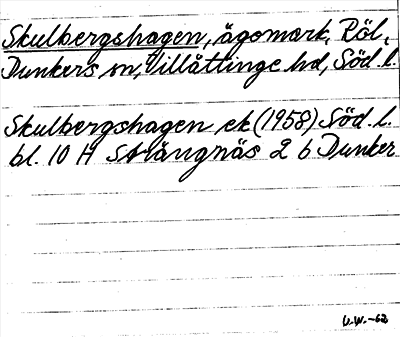 Skulbergshagen, ägomark, Röl,
Dunkers sn, Villåttinge hd, Söd.l.
Skulbergshagen ek (1958) Söd.l.
bl. 10 H Strängnäs 2 b Dunker
U.W.-62